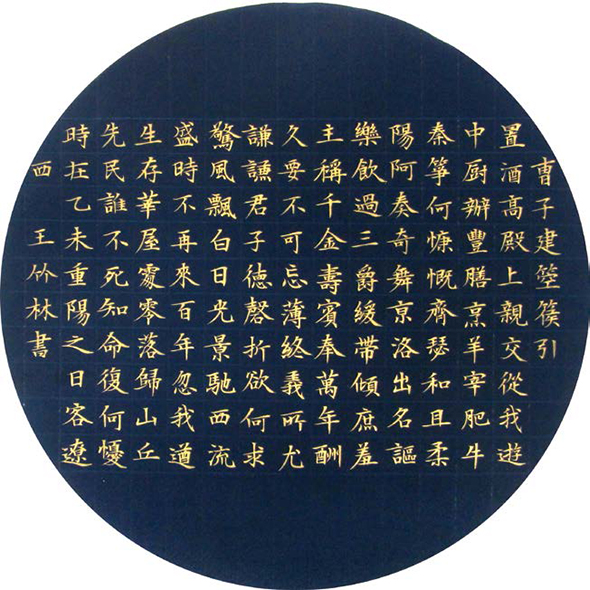 曹子建箜篌引
置酒高殿上親交從我遊
中厨辦豐膳烹羊宰肥牛
秦箏何慷慨齊瑟和且柔
陽阿奏奇舞京洛出名謳
樂飲過三爵緩帶傾庶羞
主稱千金壽賓奉萬年酬
久要不可忘薄終義所尤
謙謙君子德磬折欲何求
驚風飄白日光景馳西流
盛時不再來百年忽我遒
生存華屋處零落歸山丘
先民誰不死知命復何憂
時在乙未重陽之日客遼
西 王竹林書